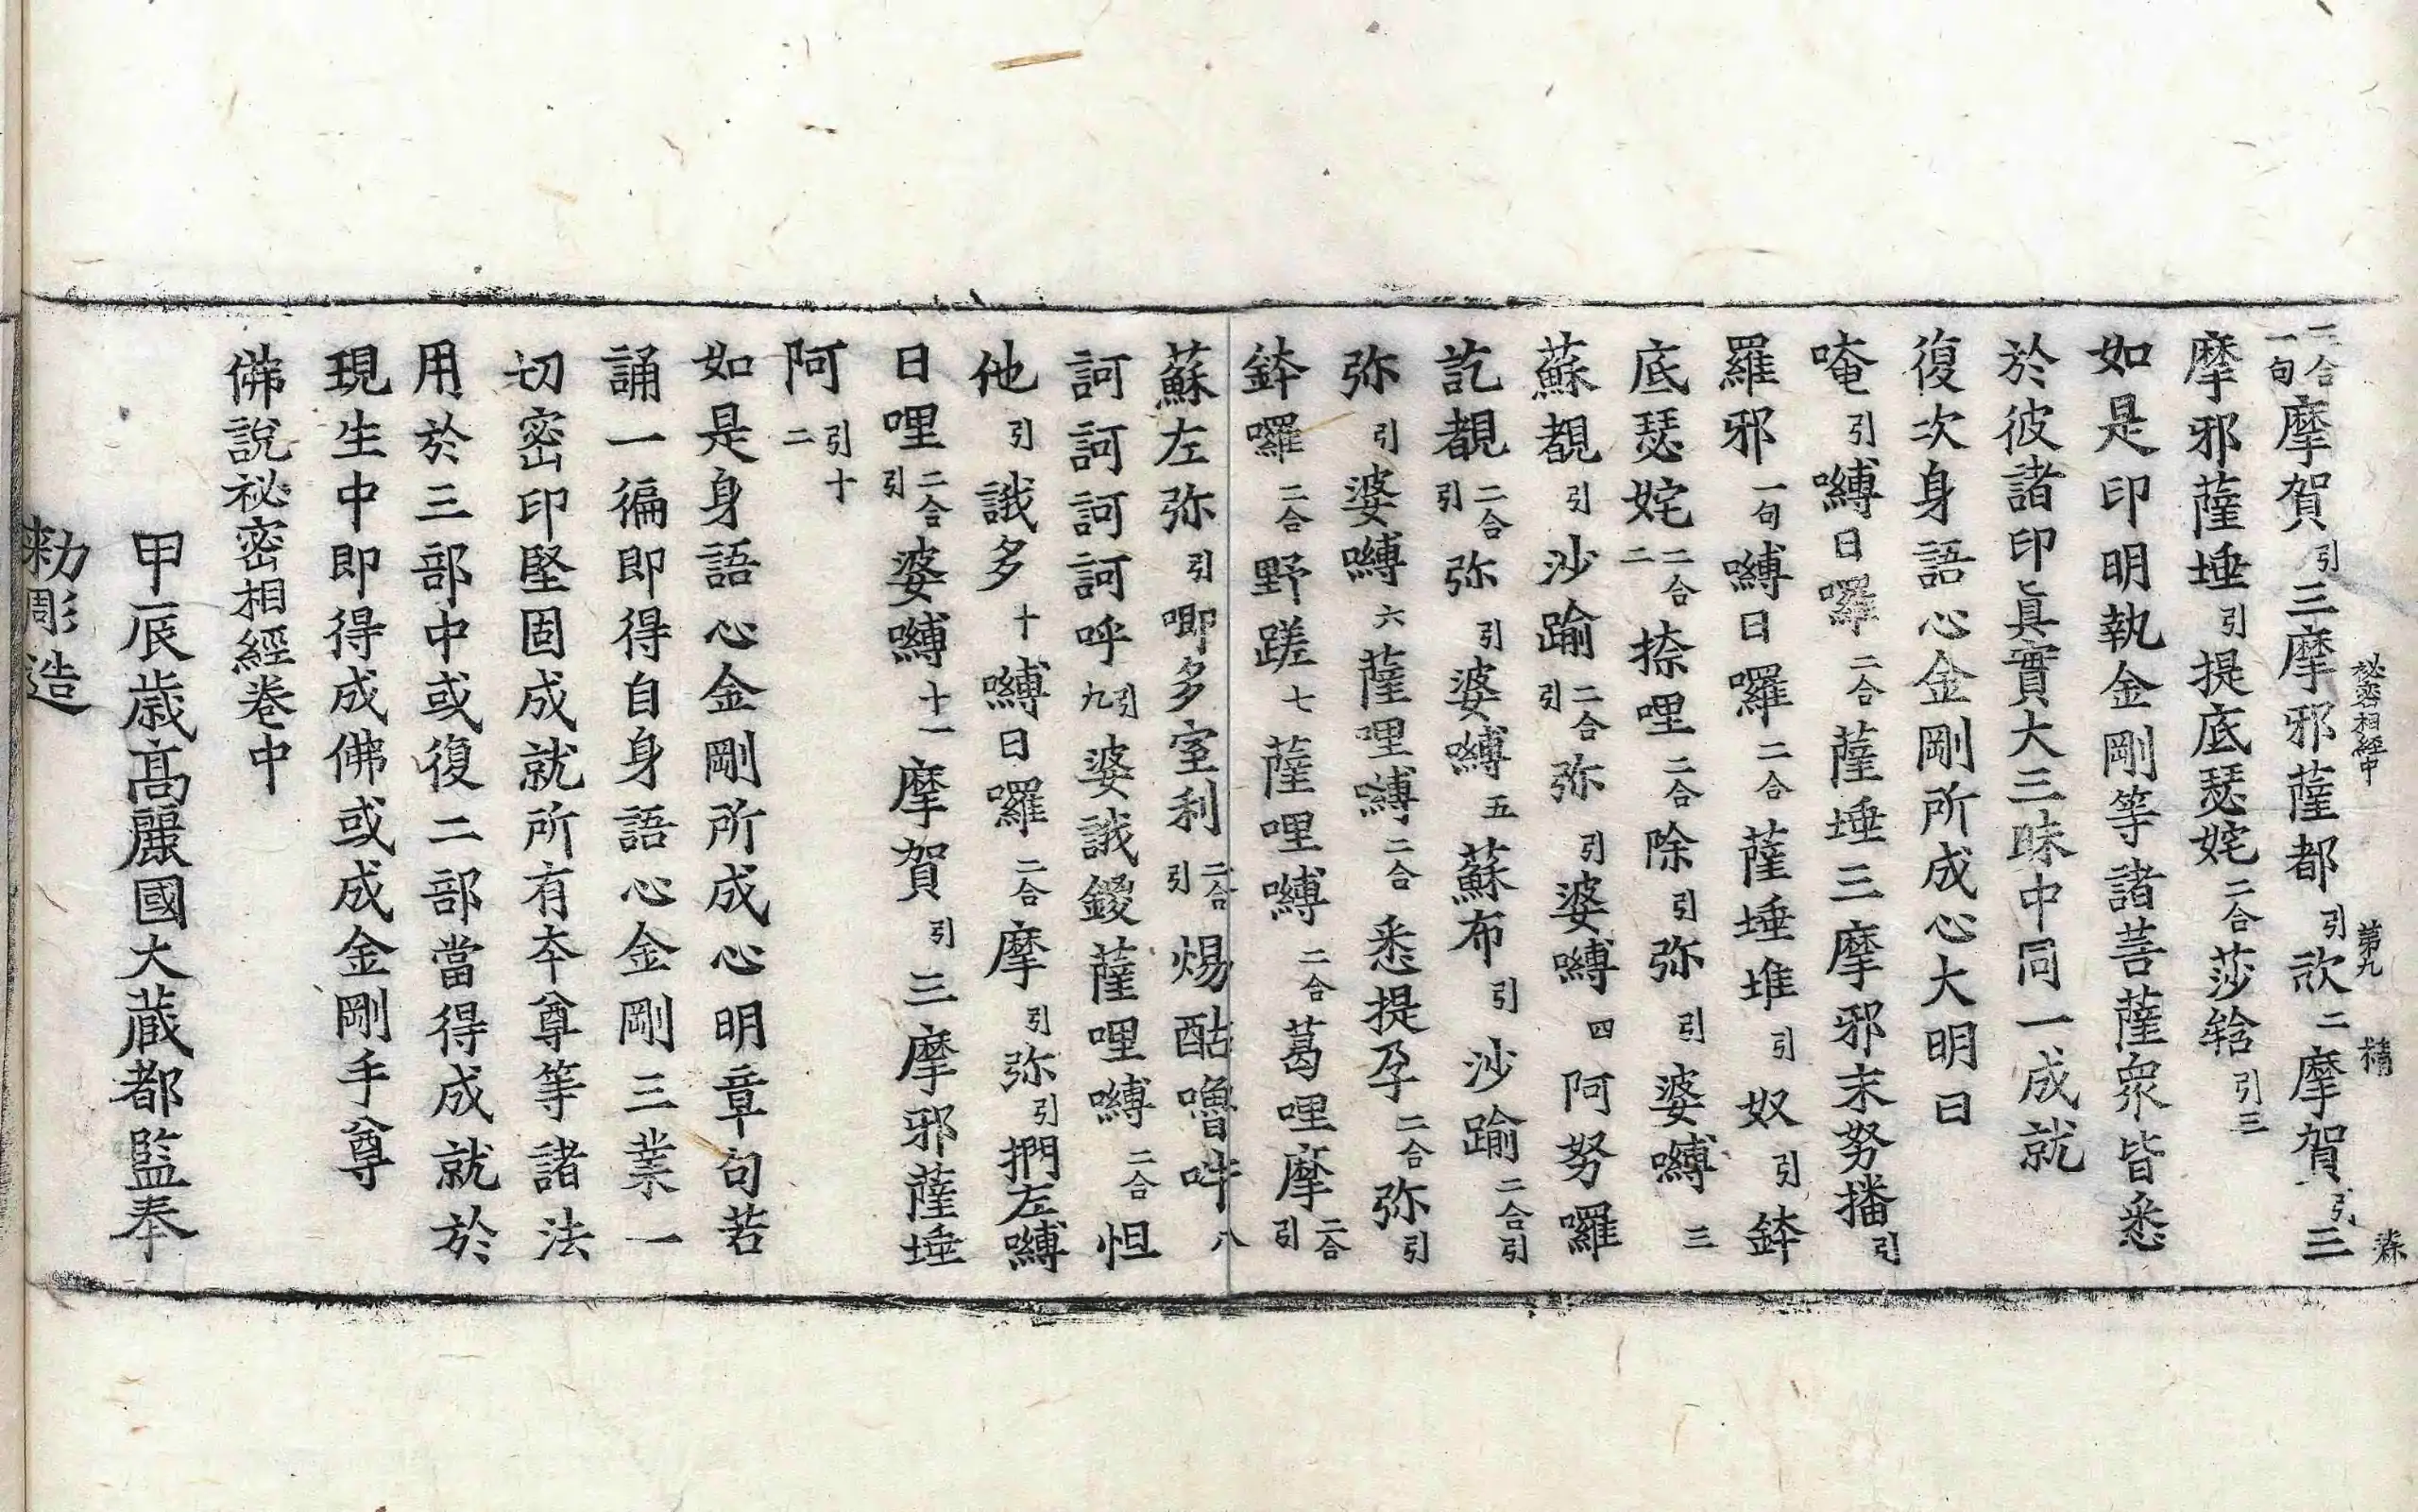 秘密相經中 第九 精 蒤
二合一句摩賀引三摩邪薩都引㰤二摩賀引三
摩邪薩埵引提底瑟姹二合莎䩭引三
如是印明執金剛等諸菩薩眾皆悉
於彼諸印眞實大三昧中同一成就
復次身語心金剛所成心大明曰
唵引嚩日囉二合薩埵三摩邪末努播引
羅邪一句嚩日囉二合薩埵堆引奴引鉢
底瑟姹二合二捺哩二合除引弥引婆嚩三
蘇覩引沙踰二合引弥引婆嚩四阿努囉
訖覩二合引弥引婆嚩五蘇布引沙踰二合引
弥引婆嚩六薩哩嚩二合悉提孕二合弥引
鉢囉二合野蹉七薩哩嚩二合葛哩摩二合引
蘇左弥引唧多室利二合引煬酤嚕吽八
訶訶訶訶呼引九婆誐鑁薩哩嚩二合怛
他引誐多十嚩日囉二合摩引弥引捫左嚩
日哩二合引婆嚩十一摩賀引三摩邪薩埵
阿引十二
如是身語心金剛所成心明章句若
誦一徧即得自身語心金剛三業一
切密印堅固成就所有本尊等諸法
用於三部中或復二部當得成就於
現生中即得成佛或成金剛手尊
佛說祕密相經卷中
甲辰歲高麗國大藏都監奉
勑彫造